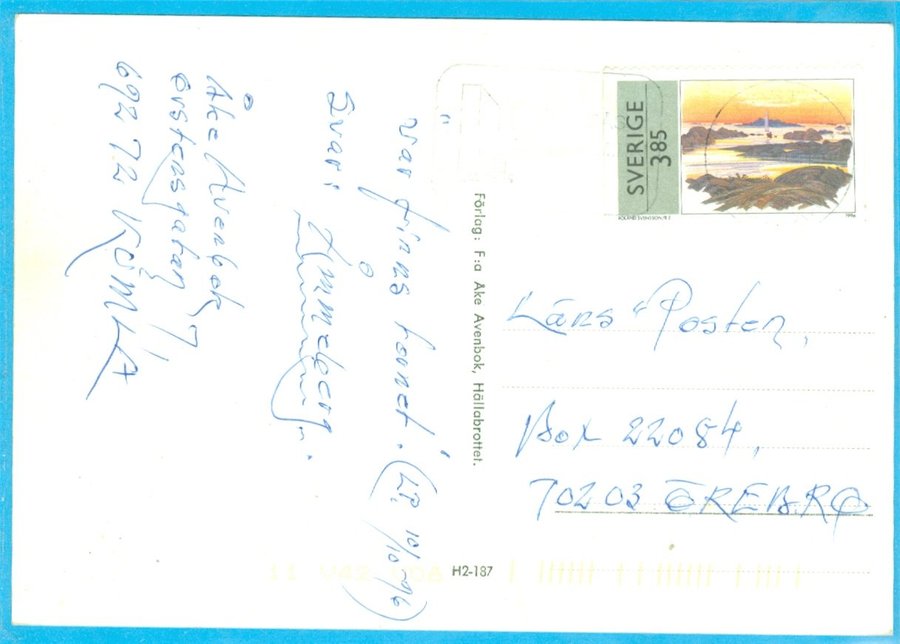 "Var finns tornet." (LP. 10/10-96)
Svar: Zimmeberg.
Åke Avenbok
Örstensgatan 7
692 72 KUMLA
Förlag: F:a Åke Avenbok, Hällabrottet.
H2-187
SVERIGE
385
1996
Läns-Posten,
Box 22084,
70203 ÖREBRO